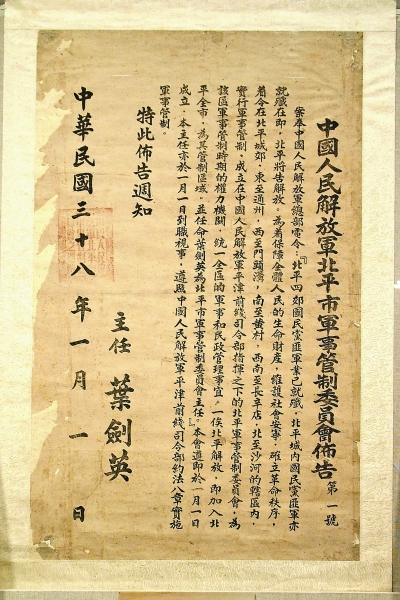 中國人民解放軍北平市軍事管制委員會佈告 第一號
案奉中國人民解放軍總部電令：『北平四郊國民黨匪軍業已就殲，北平城內國民黨匪軍亦
就殲在即，北平將告解放。為着保障全體人民的生命財產，維護社會安寧，確立革命秩序，
着令在北平城郊，東至通州，西至門頭溝，南至黃村，西南至長辛店，北至沙河的轄區內，
實行軍事管制，成立在中國人民解放軍平津前綫司令部指揮之下的北平軍事管制委員會，為
該區軍事管制時期的權力機關，統一全區的軍事和民政管理事宜，一俟北平解放，即加入北
平全市，為其管制區域。並任命葉劍英為北平市軍事管制委員會主任。』本會遵即於一月一日
成立，本主任亦於一月一日到職視事，遵照中國人民解放軍平津前綫司令部約法八章實施
軍事管制。
特此佈告週知
主任 葉劍英
中華民國三十八年一月一日